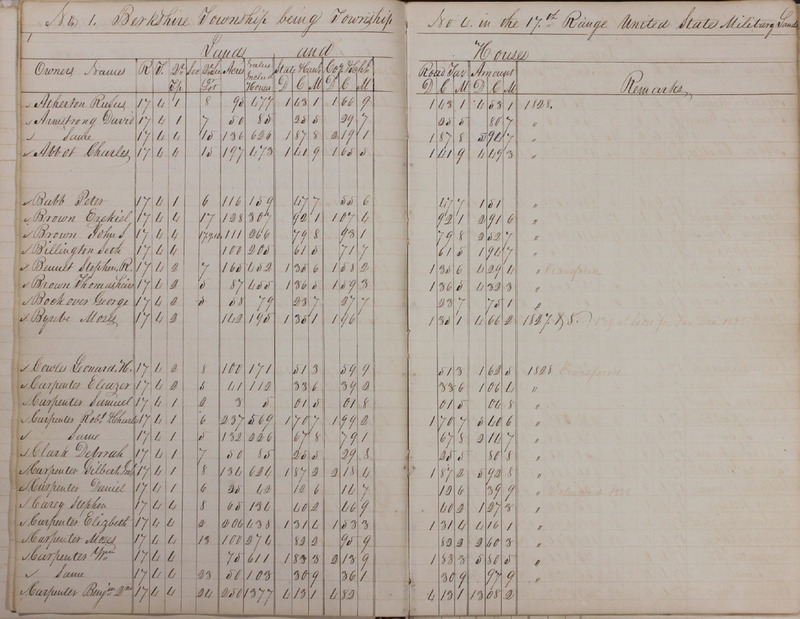 No 1. Berkshire Township being Township No 4. in the 17.th Range United States Military Lands
Lands and Houses
Owners Names R T. Acres Value Houses State &Canl Co & Road Tax Amount Remarks
D C M D C M D C M D C M
Atherton Rufus 17 4 1 8 1828
Armstrong David 17 4 1 7 50 85 25 5 29 7 25 5 80 7 "
Same 17 4 4 15 136 626 1 87 8 2 19 1 1 87 8 "
Abbot Charles 17 4 4 15 197 473 1 41 9 1 65 5 1 41 9 4 49 3 "
Babb Peter 17 4 1 6 116 159 47 7 55 6 47 7 1 51 "
Brown Ezekiel 17 4 4 17 128 307 92 1 1 07 4 92 1 2 91 6 "
Brown John S 17 4 4 111 266 79 8 93 1 79 8 2 52 7 "
Billington Seth 17 4 4 100 205 61 5 71 7 61 5 1 94 7 "
Bennet Stephen R. 17 4 2 7 165 452 1 35 6 1 58 2 1 35 6 4 29 4 "
Brown Thomas 17 4 2 5 87 455 1 36 5 1 59 3 1 36 5 4 32 3 "
Bockoven George 17 4 2 5 58 79 23 7 27 7 23 7 75 1 "
Byxbe Moses 17 4 2 142 195 1 35 1 1 96 1 35 1 4 66 2 1827 & 8.
Cowles Leonard H. 17 4 2 8 100 171 51 3 59 9 51 3 1 62 5 1828
Carpenter Eleazer 17 4 2 5 41 112 33 6 39 2 33 6 1 06 4 "
Carpenter Samuel 17 4 1 2 3 5 01 5 01 8 01 5 04 8 "
Carpenter Robt. & Charles 17 4 1 6 237 569 1 70 7 1 99 2 1 70 7 5 40 6 "
Same 17 4 1 5 132 226 67 8 79 1 67 8 2 14 7 "
Clark Deborah 17 4 1 7 50 85 25 5 29 8 25 5 80 8 "
Carpenter Gilbert 17 4 1 8 134 624 1 87 2 2 18 4 1 87 2 5 92 8 "
Carpenter Daniel 17 4 1 6 25 42 12 6 14 7 12 6 39 9 "
Carey Stephen 17 4 4 8 65 134 40 2 46 9 40 2 1 27 3 "
Carpenter Elizbeth 17 4 4 2 206 438 1 31 4 1 53 3 1 31 4 4 16 1 "
Carpenter Moses 17 4 4 13 100 274 82 2 95 9 82 2 2 60 3 "
Carpenter 17 4 4 75 611 1 83 3 2 13 9 1 83 3 5 80 5 "
Same 17 4 4 23 50 103 30 9 36 1 30 9 97 9 "
Carpenter Benjn 17 4 4 24 250 1377 4 13 1 4 82 4 13 1 13 08 2